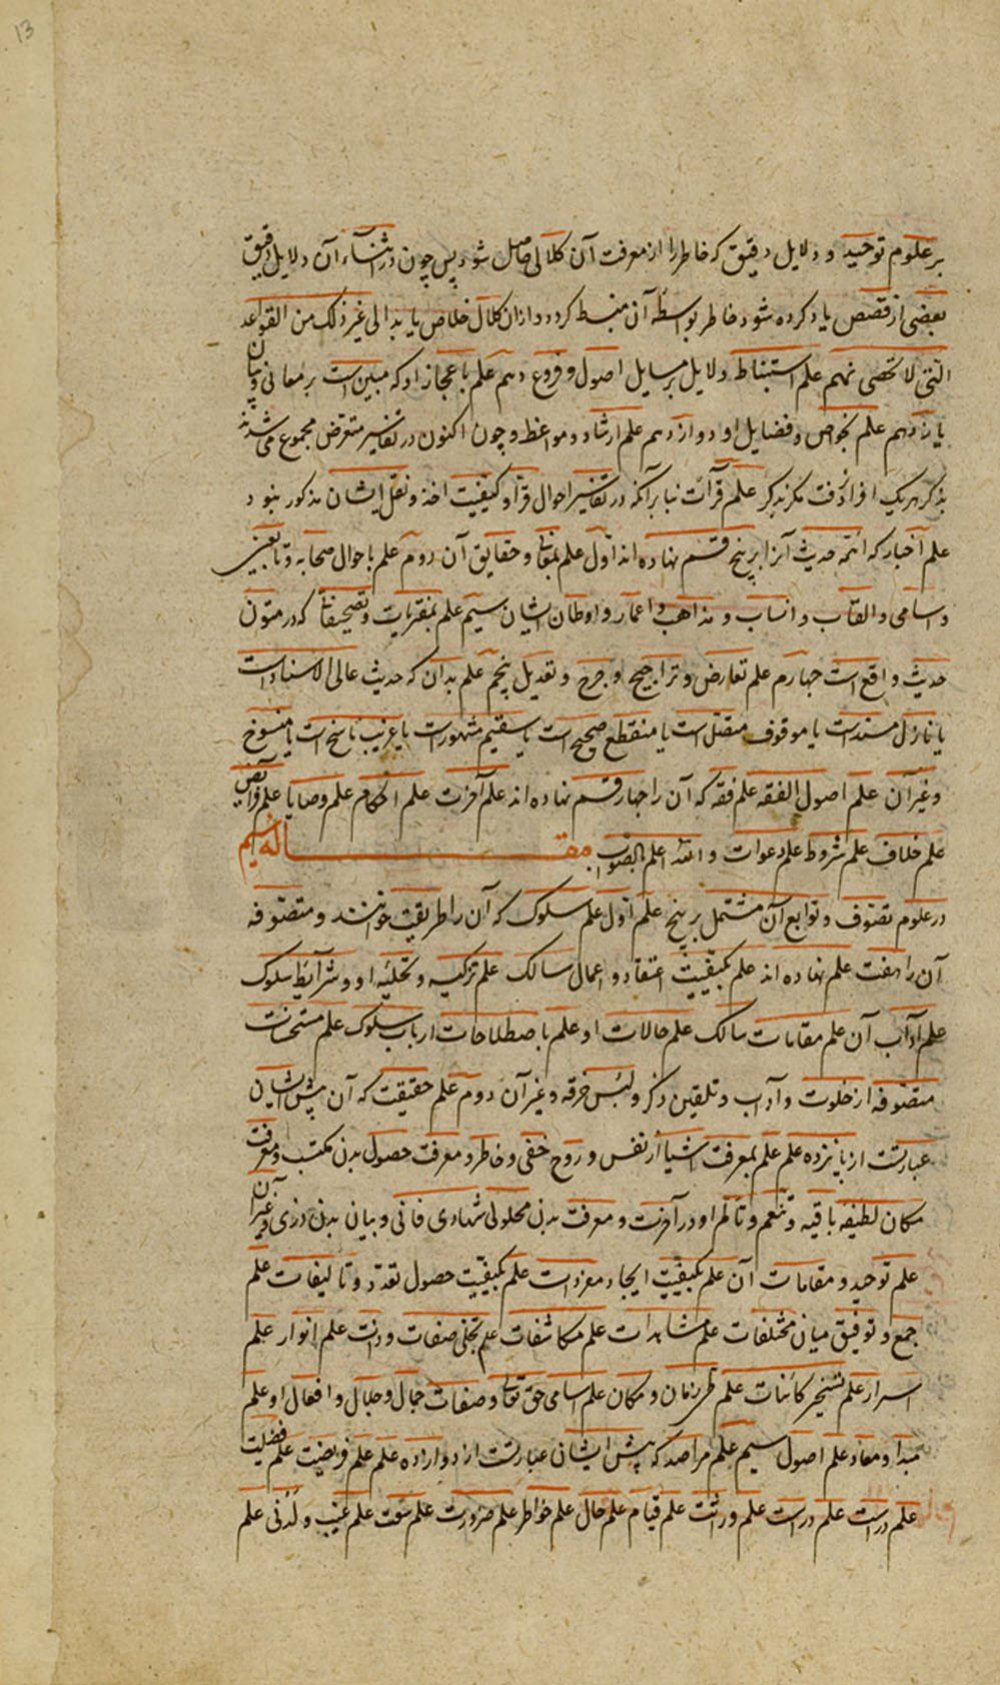 13
بر علوم توحید و دلایل دقیق که خاطر را از معرفت آن کلالی حاصل شود پس چون در اثناء آن دلایل دقیق
بعضی از قصص یاد کرده شود خاطر بواسطه آن منبسط گردد و از ان کلال خلاص یابد الی غیر ذلک من القواعد
التی لا تحصی نهم علم استنباط دلایل بر مسایل اصول و فروع دهم علم باعجاز او که مبین است بر معانی و بیان
یازدهم علم بخواص و فضایل او دوازدهم علم ارشاد و مواعظ و چون اکنون در تفسیر متعرض مجموع می شدند
بذکر هریک افراد نرفت مگر بذکر علم قرآت بنا برآنکه در تفسیر احوال قرآ و کیفیت اخذ و نقل ایشان مذکور نبود
علم اخبار که ائمه حدیث آنرا بر پنج قسم نهاده اند اول علم بمعانی و حقایق آن دوم علم باحوال صحابه و تابعین
و اسامی و القاب و انساب و مذاهب و اعمار و اوطان ایشان سیم علم بتقریبات و تصحیفات که در متون
حدیث واقع است چهارم علم تعارض و تراجیح و جرح و تعدیل پنجم علم بدان که حدیث عالی الاسناد است
یا نازل مسند است یا موقوف متصل است یا منقطع صحیح است یا سقیم مشهور است یا غریب ناسخ است یا منسوخ
و غیر آن علم اصول الفقه علم فقه که آن را چهار قسم نهاده اند علم آخرت علم احکام علم وصایا علم فرایض
علم خلاف علم شروط علم دعوات و الله اعلم بالصواب مقاله سیم
در علوم تصوف و توابع آن مشتمل بر پنج علم اول علم سلوک که آن را طریقت خوانند و متصوفه
آن را هفت علم نهاده اند علم بکیفیت اعتقاد و اعمال سالک علم تزکیه و تحلیه او و شرایط سلوک
علم آداب آن علم مقامات سالک علم حالات او علم باصطلاحات ارباب سلوک علم مستحسنات
متصوفه از خلوت و آداب و تلقین ذکر و لبس خرقه و غیر آن دوم علم حقیقت که آن پیش ایشان
عبارتست از پانزده علم علم بمعرفت اشیا از نفس و روح خفی و خاطر و معرفت حصول بدن مکتب و معرفت
مکان لطیفه باقیه و تنعم و تالم او در آخرت و معرفت بدن محلولی شهادی فانی و بیان بدن ذری و غیر آن
علم توحید و مقامات آن علم بکیفیت ایجاد مفردات علم بکیفیت حصول تعدد و تالیفات علم
جمع و توفیق میان مختلفات علم مشاهدات علم مکاشفات علم تجلی صفات و ذات علم انوار علم
اسرار علم تسخیر کائنات علم طی زمان و مکان علم اسامی حق تعالی و صفات جمال و جلال و افعال او علم
مبدا و معاد علم اصول سیم علم مراصد که پیش ایشان عبارتست از دوازده علم علم فریضت علم فضیلت
علم دراست علم وراثت علم قیام علم حال علم خواطر علم ضرورت علم سعت علم غیب و لدنی علم